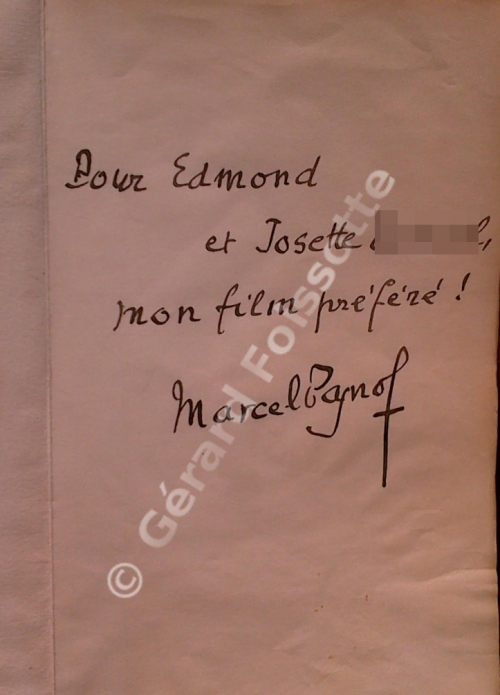 Pour Edmond
et Josette
mon film préféré !
Marcel Pagnol
© Gérard Foissotte